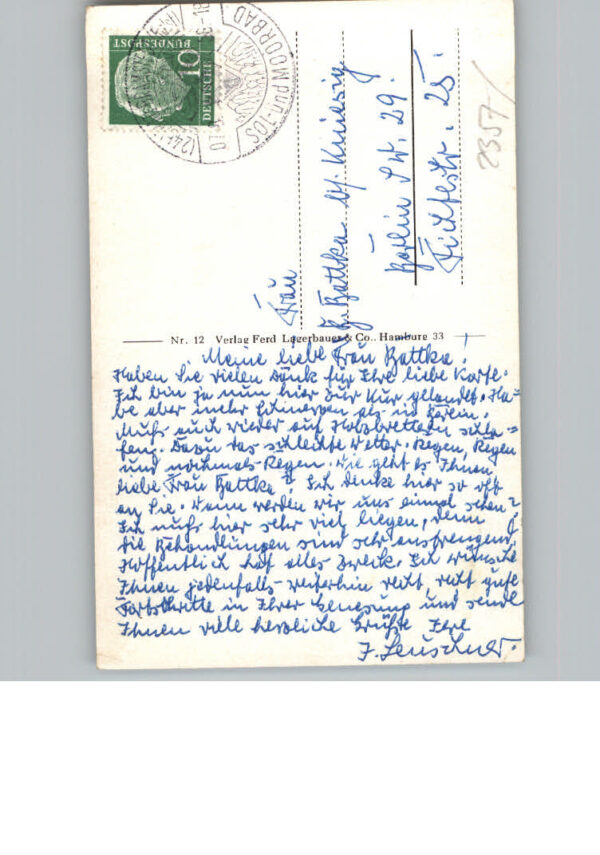 DEUTSCHE
BUNDESPOST
10
SOL- UND MOORBAD
2357/
Frau
Battka
Berlin SW. 29.
Fichtestr. 25.
Nr. 12 Verlag Ferd Lagerbauer & Co., Hamburg 33
Meine liebe Frau Battka!
Haben Sie vielen Dank für Ihre liebe Karte.
Ich bin ja nun hier zur Kur gelandet. Ha-
be aber mehr Schmerzen als in Berlin.
Muß auch wieder auf Holzbrettern schla=
fen. Dazu das schlechte Wetter. Regen, Regen
und nochmals Regen. Wie geht es Ihnen
liebe Frau Battka? Ich denke hier so oft
an Sie. Wann werden wir uns einmal sehen?
Ich muß hier sehr viel liegen, denn
die Behandlungen sind sehr anstrengend.
Hoffentlich hat alles Zweck. Ich wünsche
Ihnen jedenfalls weiterhin recht, recht gute
Fortschritte in Ihrer Genesung und sende
Ihnen viele herzliche Grüße Ihre
J. Leuschner.